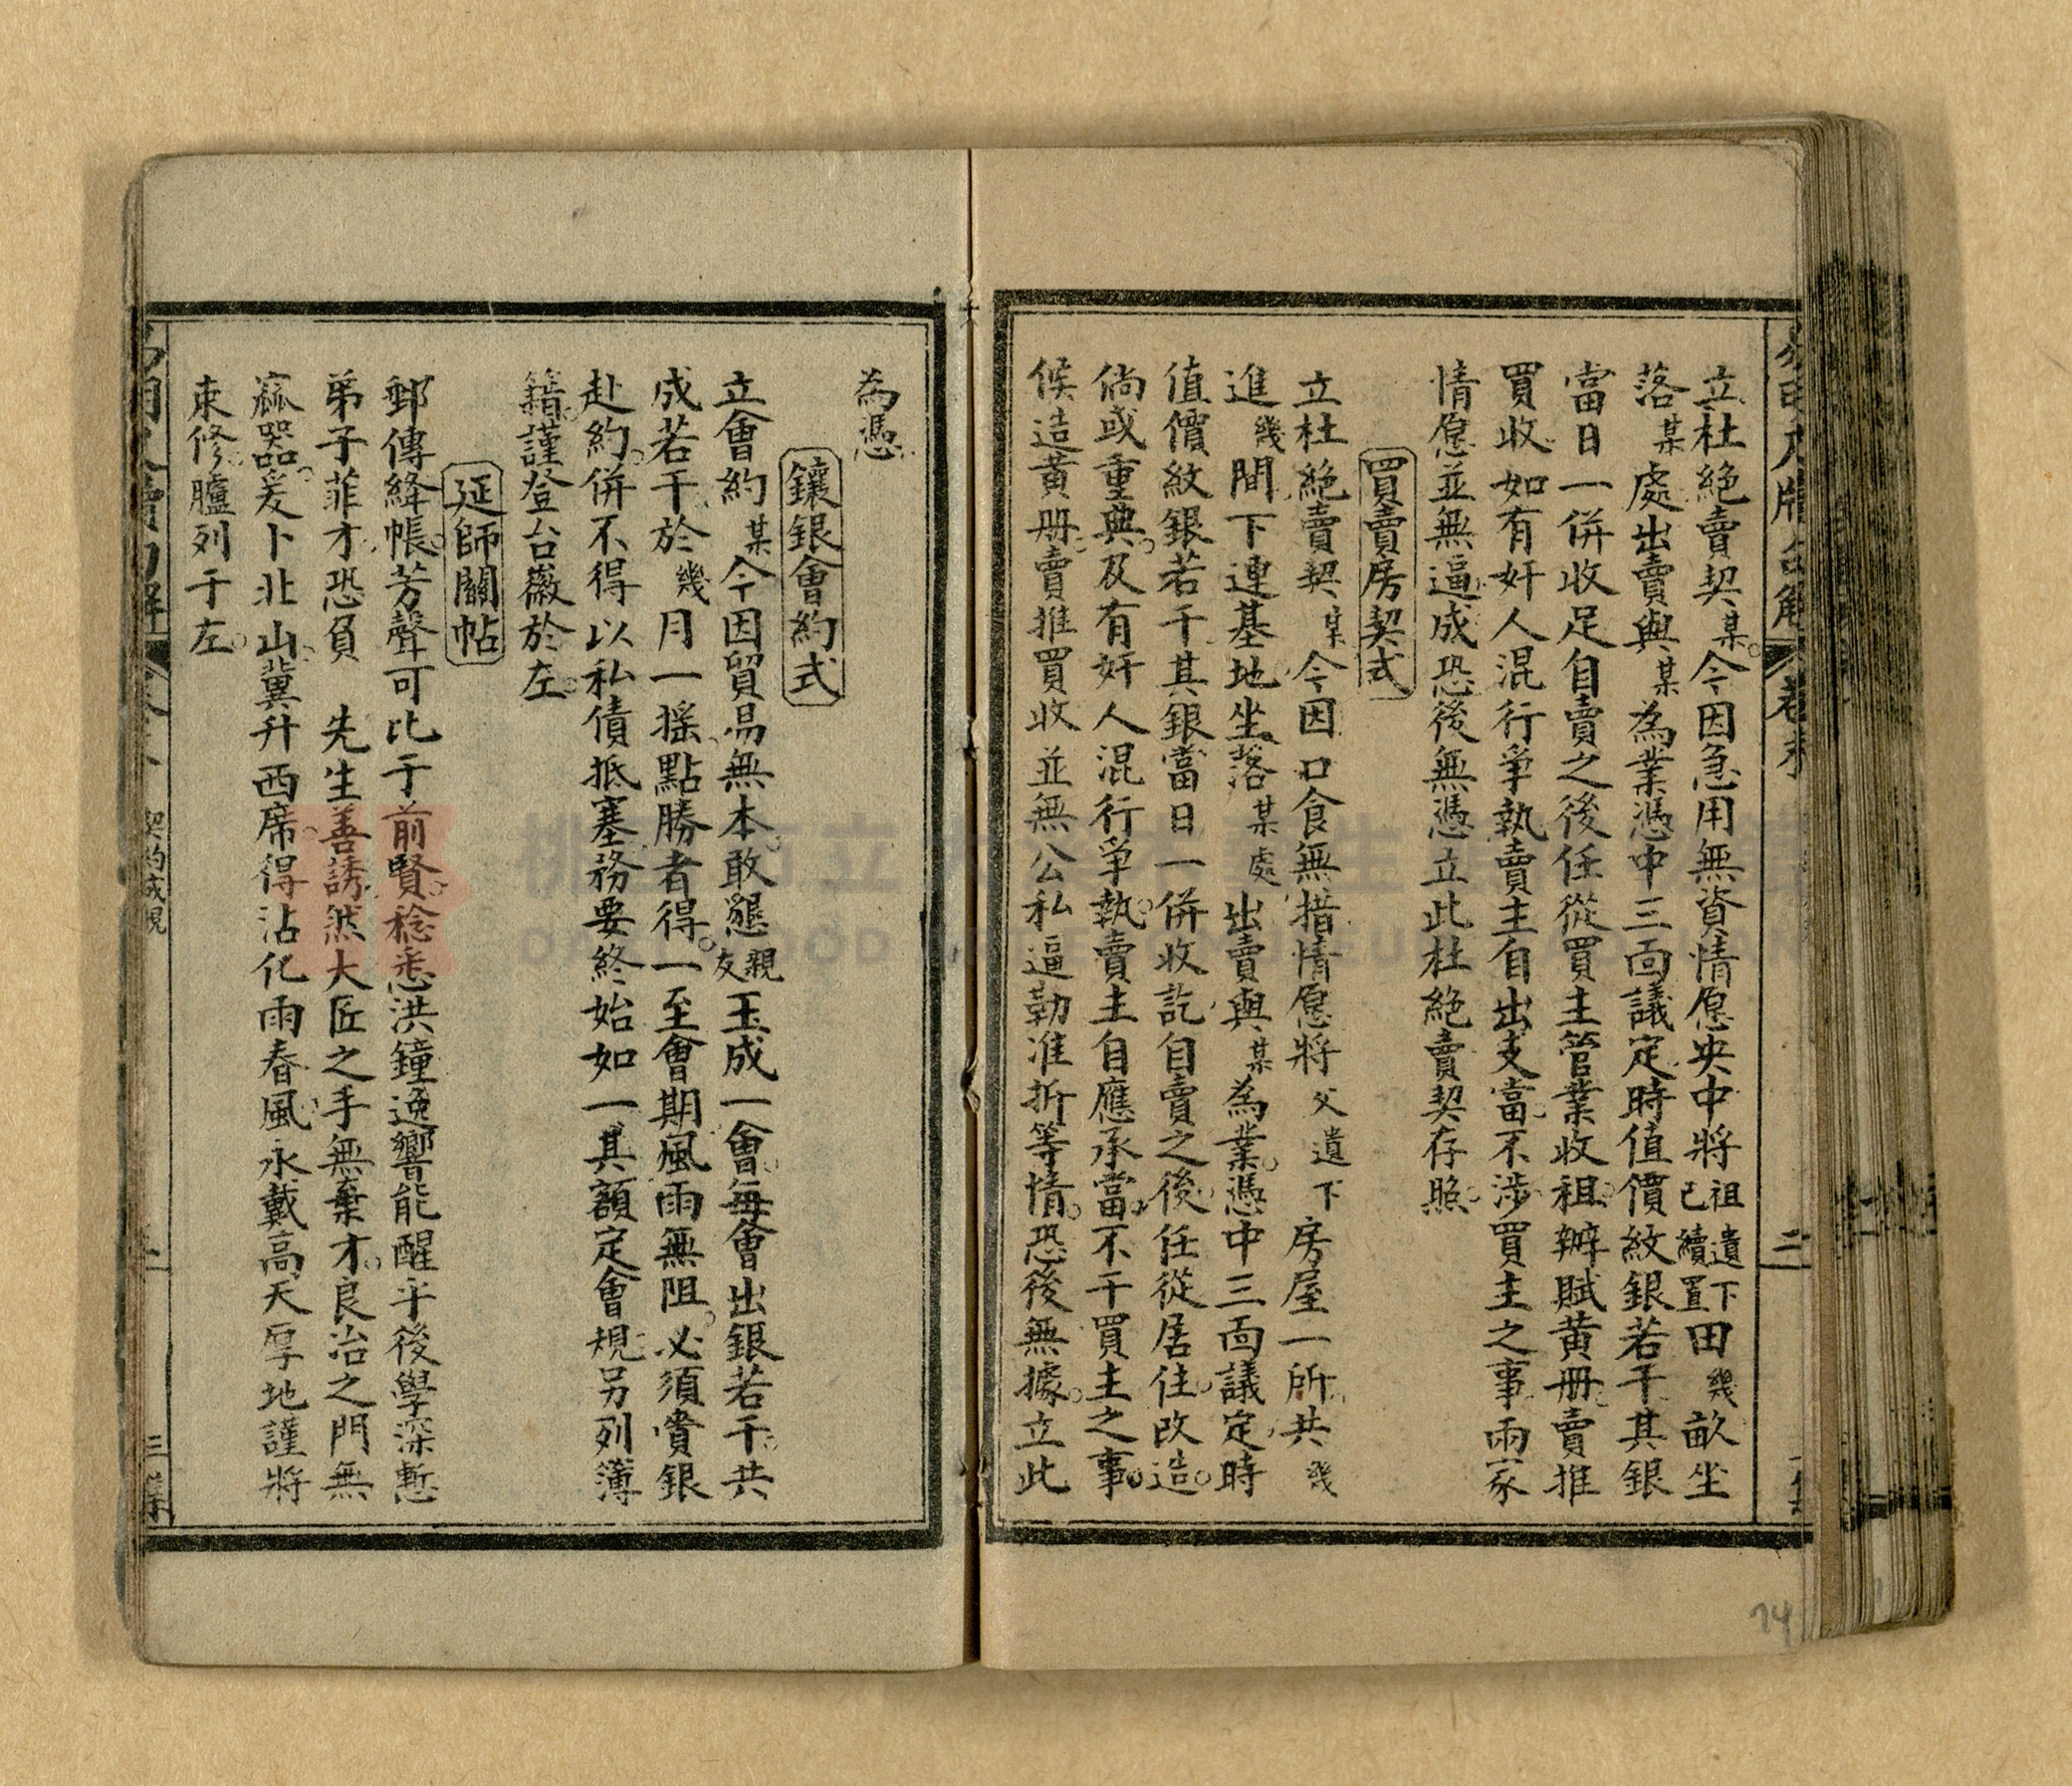 立杜絕賣契某今因急用無資情愿央中將祖遺下己續置田幾畝坐
落某處出賣與某為業憑中三面議定時值價紋銀若干其銀
當日一併收足自賣之後任從買主管業收租辦賦黃册賣推
買收如有奸人混行爭執賣主自出支當不涉買主之事兩家
情愿並無逼成恐後無憑立此杜絕賣契存照
買賣房契式
立杜絕賣契某今因口食無措情愿將父遺下房屋一所共幾
進幾間下連基地坐落某處出賣與某為業憑中三面議定時
值價紋銀若干其銀當日一併收訖自賣之後任從居住改造
倘或重典及有奸人混行爭執賣主自應承當不干買主之事
候造黃册賣推買收並無公私逼勒准折等情恐後無據立此
為憑
鑲銀會約式
立會約某今因貿易無本敢懇親友玉成一會每會出銀若干共
成若干於幾月一搖點勝者得一至會期風雨無阻必須賞銀
赴約併不得以私債抵塞務要終始如一其額定會規另列簿
籍謹登台徽於左
延師關帖
郵傳絳帳芳聲可比于前賢稔悉洪鐘逸響能醒乎後學深慙
弟子菲才恐負 先生善誘然大匠之手無棄才良冶之門無
窳器爰卜北山冀升西席得沾化雨春風永戴高天厚地謹將
束修臚列于左